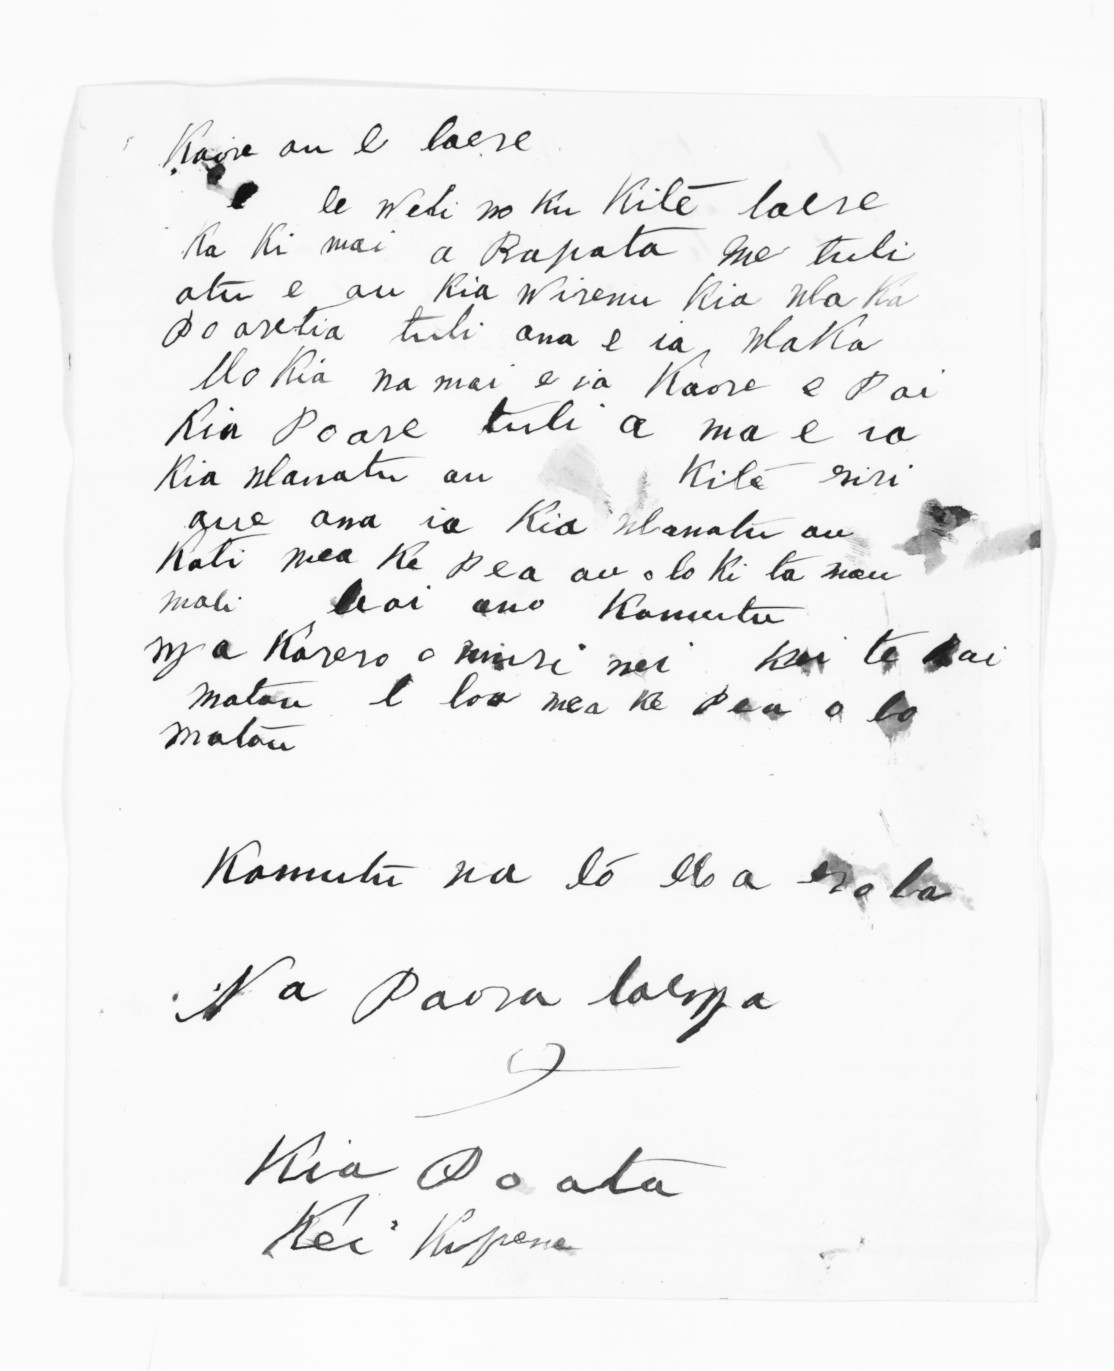 Kaore au e taere
te Weti no ku Kite taere
Ka Ki mai a Rapata me tuti
atu e au Kia Wiremu Kia Wtaka
Poaretia tuti ana e ia, WtaKa
HoKia na mai e ia Kaore e Pai
Kia Poare tuti a ma e ia
Kia Wtanatu au Kite riri
aue ana ia Kia Wtanatu au
Kati mea Ke Pea au o to Ki ta mau
mati ano Kamutu
nga Korero o muri nei Kei te Pai
matau e toa mea Ke Pea o to
matau
Kamutu na tō Hoa
Na Paora taenga
Kia Poata
Kei Kupene